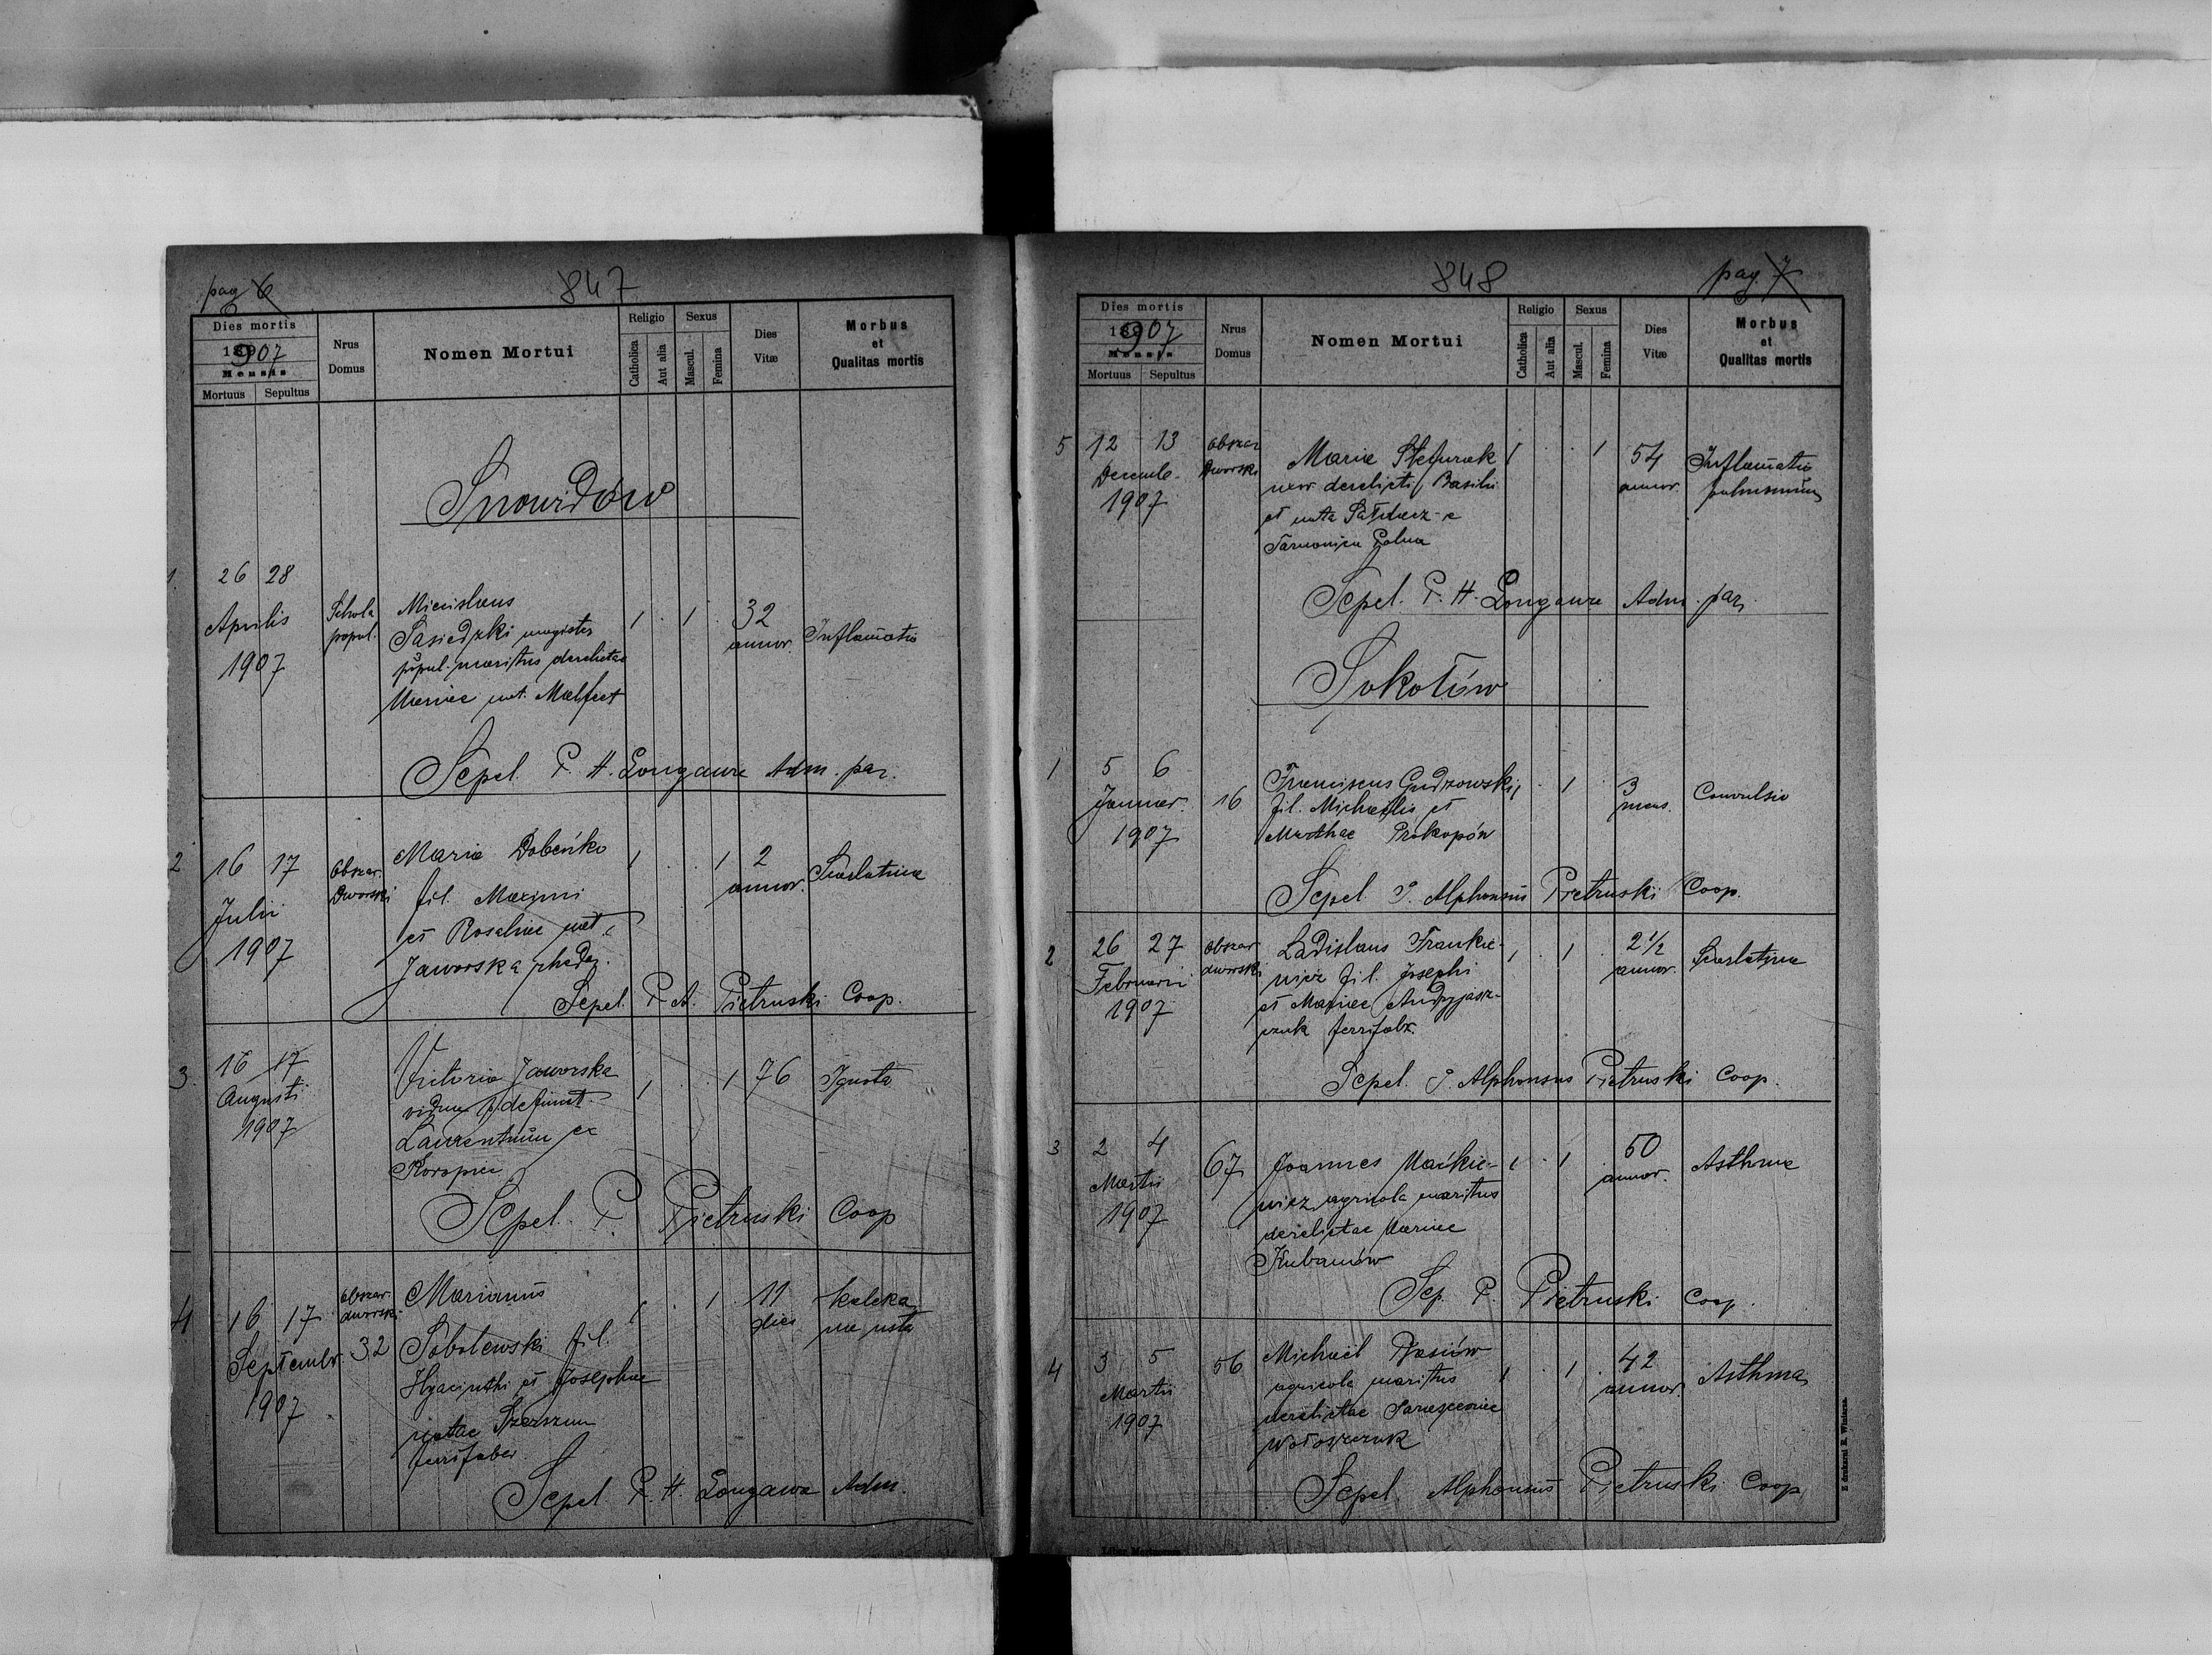 pag 6
847
Dies mortis
1907
Mensis
Mortuus Sepultus
Nrus Domus
Nomen Mortui
Religio
Catholica
Aut alia
Sexus
Mascul.
Femina
Dies Vitæ
Morbus et Qualitas mortis
Snowidów
1. 26 28 Aprilis 1907
Schola popul.
Miecislaus
Sasiedzki magister
popul. maritus derelictae
Mariae nat.
1 1 32 annor. Inflam̄atio
Sepel. P. H. Longawa Adm. par.
2 16 17 Julii 1907
Obszar Dworski
Maria Dobeńko
fil. Maximi
et Rosaliae nat.
Jaworska
1 1 2 annor. Scarlatina
Sepel. P. A. Pietruski Coop.
3. 16 17 Augusti 1907
Victoria Jaworska
vidua p. defunct.
Laurentium ex
1 1 76 Ignota
Sepel. P. Pietruski Coop
4 16 17 Septembr. 1907
obszar dworski 32
Marianus
Sobolewski fil.
Hyacinthi et Josephae
natae
1 1 11 dies kaleka na usta
Sepel. P. H. Longawa Adm.
848
pag 7
Dies mortis
1907
Mensis
Mortuus Sepultus
Nrus Domus
Nomen Mortui
Religio
Catholica
Aut alia
Sexus
Mascul.
Femina
Dies Vitæ
Morbus et Qualitas mortis
5 12 13 Decemb. 1907
Obszar Dworski
Maria Stefurak
uxor derelicti Basilii
et nata
1 1 54 annor. Inflam̄atio pulmonum
Sepel. P. H. Longawa Adm. par.
Sokołów
1 5 6 Januar. 1907
16
Franciscus Gudzowski
fil. Michaelis et
Marthae Prokopów
1 1 3 mens. Convulsio
Sepel P. Alphonsus Pietruski Coop.
2 26 27 Februarii 1907
obszar dworski
Ladislaus Frankie-
wicz fil. Josephi
et Mariae Andryjasz-
czuk
1 1 2 1/2 annor. Scarlatina
Sepel. P. Alphonsus Pietruski Coop.
3 2 4 Martii 1907
67
Joannes Maćkie-
wicz agricola maritus
derelictae Mariae
Kubanów
1 1 50 annor. Asthma
Sep. P. Pietruski Coop.
4 3 5 Martii 1907
56
Michael
agricola maritus
derelictae
Wołoszczuk
1 1 42 annor. Asthma
Sepel. Alphonsus Pietruski Coop
Z drukarni E. Winiarza.
Liber Mortuorum